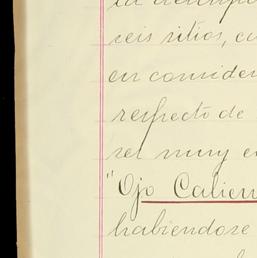 la
seis sitios, cu
en consider
respecto de
ser muy e
"Ojo Calien
habiendose